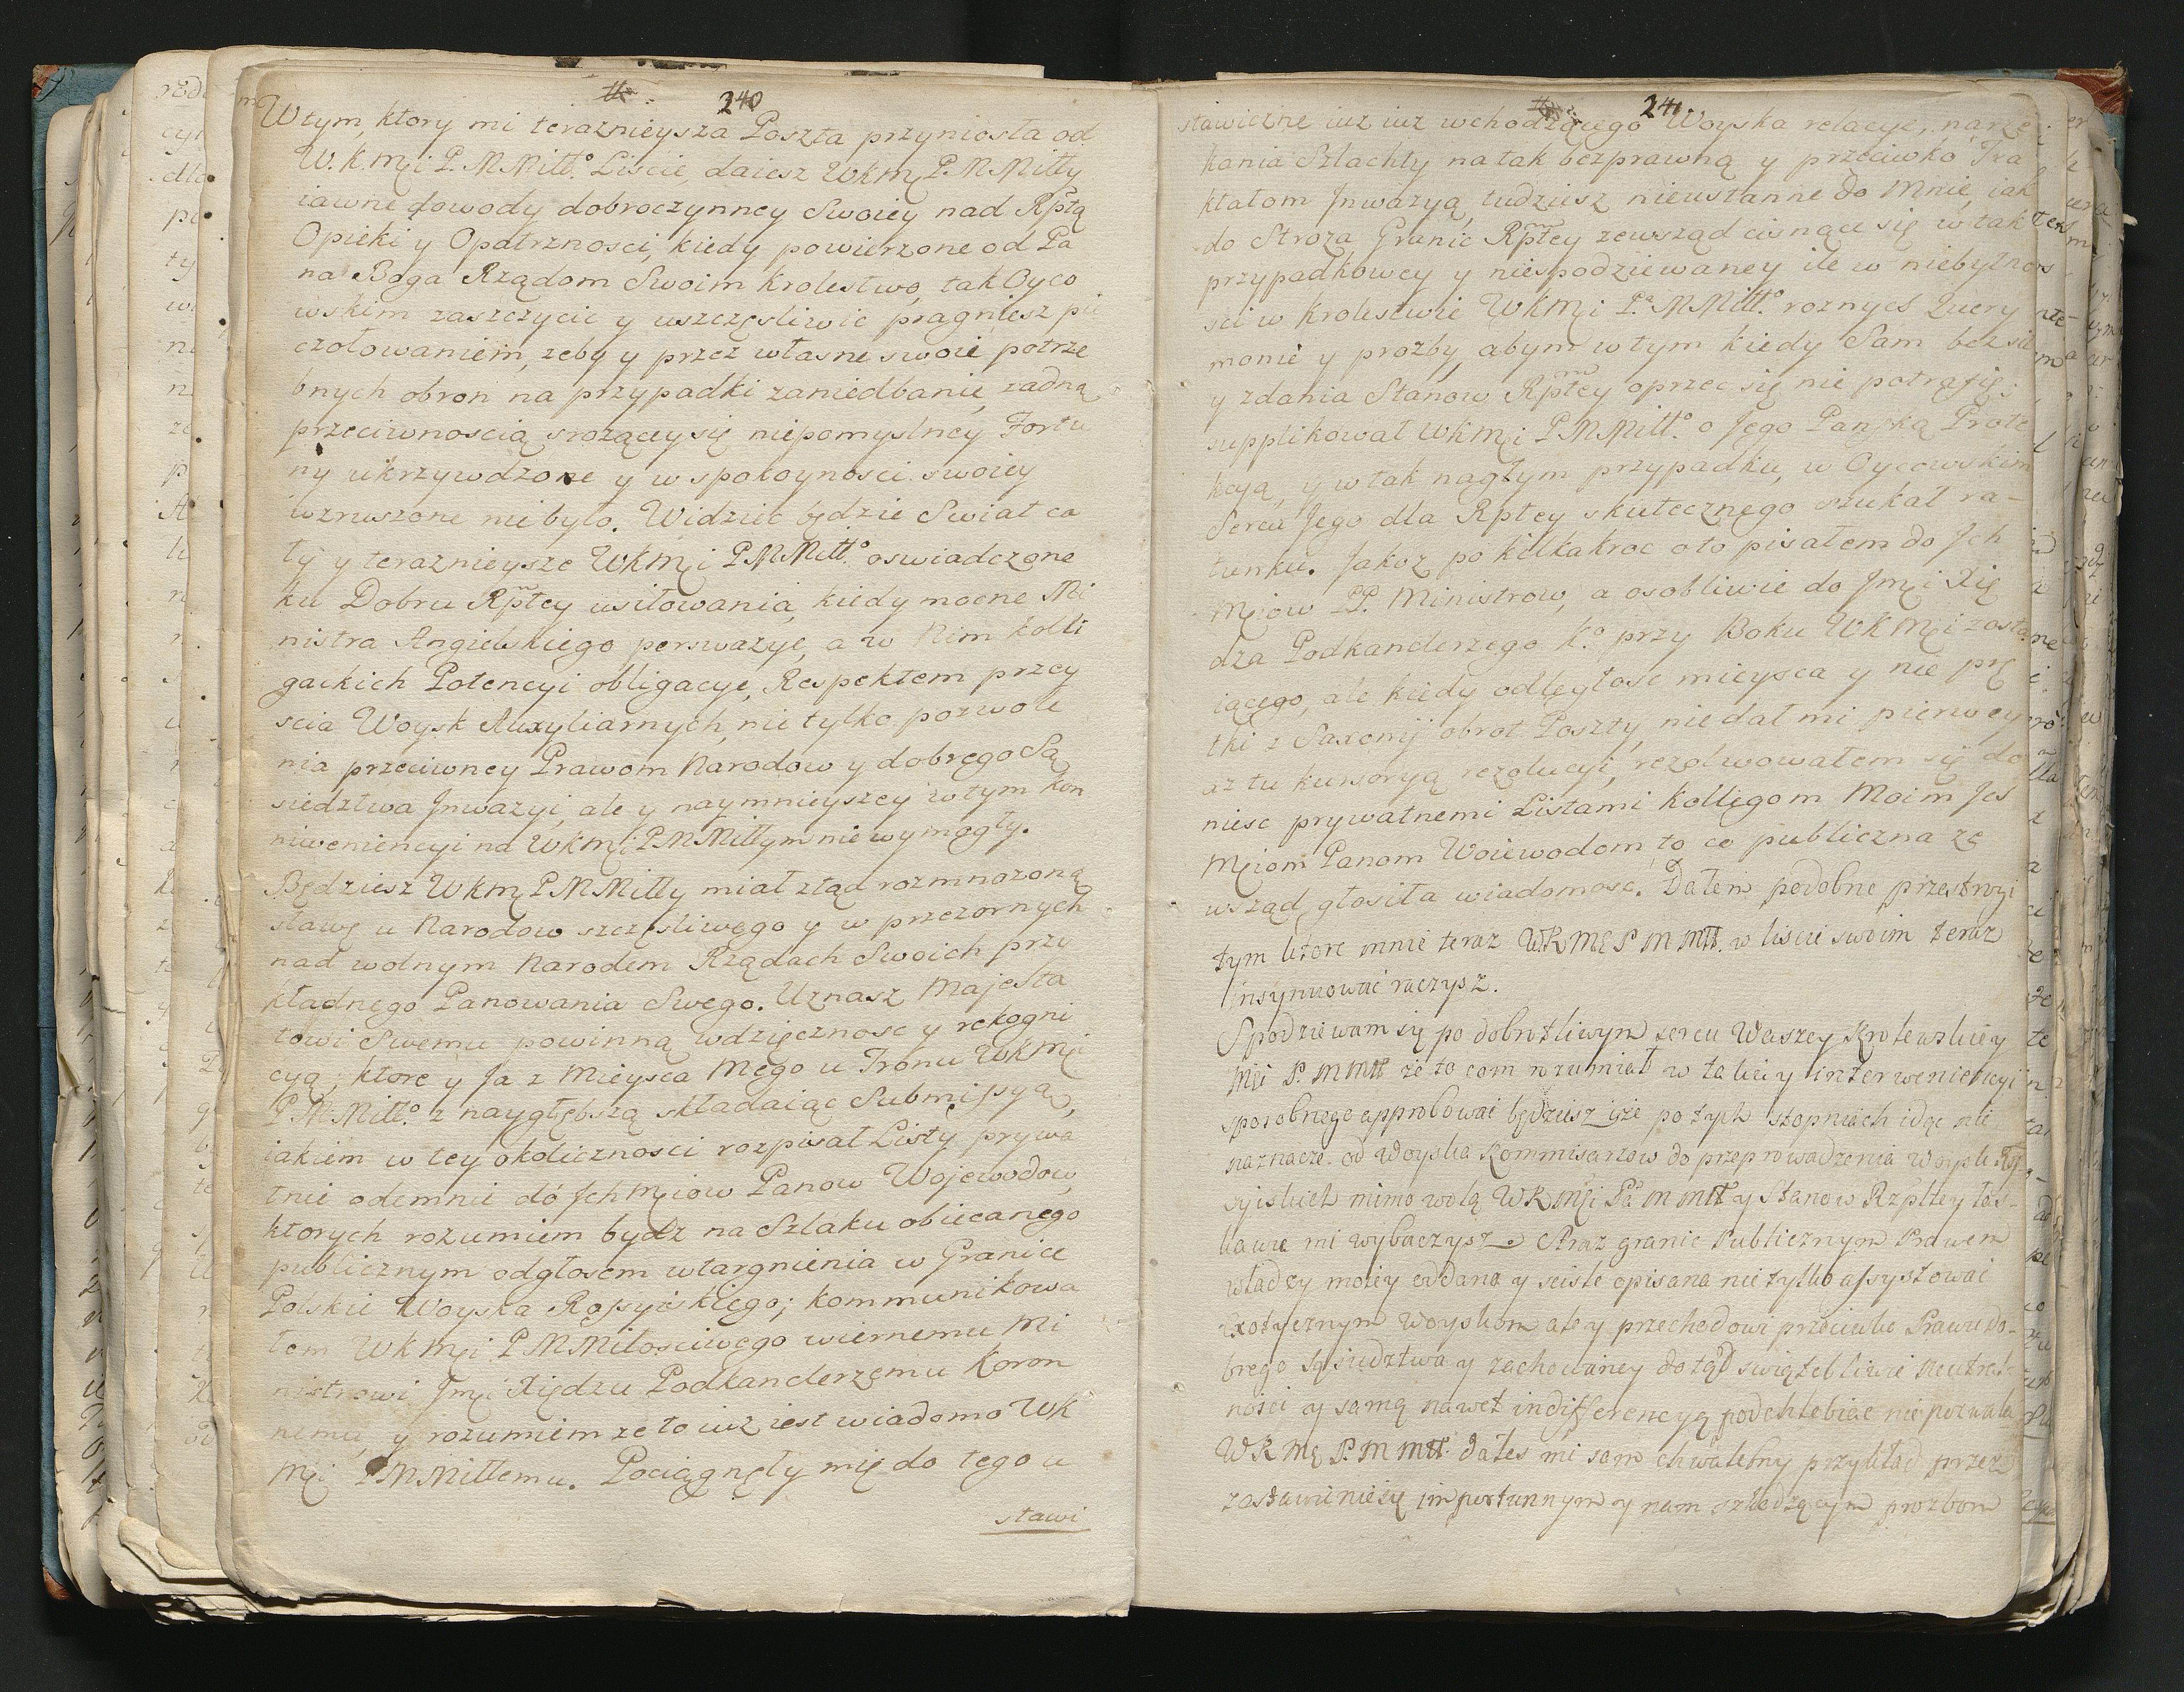 240
W tym, ktory mi teraznieysza Poszta przyniosła od
W.K.Mci P. M Miłł.º Liscie, daiesz WKMc P. M Miłły
iawne dowody dobroczynney Swoiey nad Rptą
Opieki y Opatrznosci, kiedy powierzone od Pa
na Boga Rządom Swoim Krolestwo, tak Oyco
wskim zaszczycic y uszczęsliwic pragniesz pie
czołowaniem, zeby y przez własne swoie potrze
bnych obron na przypadki zaniedbanie, zadną
przeciwnoscią srozącey się niepomyslney Fortu
ny ukrzywdzone y w spokoynosci swoiey
wzruszone nie było. Widziec będzie Swiat ca
ły y teraznieysze WKMci P M Miłł.º oswiadczone
ku Dobru Rptey usiłowania, kiedy mocne Mi
nistra Angielskiego perswazye, a w Nim Kolli
gackich Potencyi obligacye, Respektem przey
scia Woysk Auxyliarnych, nie tylko pozwole
nia przeciwney Prawom Narodow y dobrego Są
siedztwa Inwazyi, ale y naymnieyszey w tym kon
niweniencyi na WKMci P M Miłłym nie wymogły.
Będziesz WKMc P M Miłły miał ztąd rozmnozoną
sławę u Narodow szczęsliwego y w przezornych
nad wolnym Narodem Rządach Swoich przy
kładnego Panowania Swego. Uznasz Majesta
towi Swemu powinną wdzięcznosc y rekogni
cyą; ktore y Ja z Mieysca Mego u Tronu WKMci
P M Miłł.º z naygłębszą składaiąc Submissyą,
iakiem w tey okolicznosci rozpisał Listy prywa
tnie odemnie do Ichmciow Panow Wojewodow,
ktorych rozumiem bydz na Szlaku obiecanego
publicznym odgłosem wtargnienia w Granice
Polskie Woyska Rossyiskiego; kommunikowa
łem WKMci P M Miłosciwego wiernemu Mi
nistrowi Jmci Xiędzu Podkanclerzemu Koron
nemu, y rozumiem ze to iuz iest wiadomo WK
Mci P M Miłłemu. Pociągnęły mię do tego u
stawi
241
stawiczne iuz iuz wchodzącego Woyska relacye, narze
kania Szlachty na tak bezprawną y przeciwko Tra
ktatom Inwazyą, tudziesz nieustanne do Mnie, iak
do Stroza Granic Rptey zewsząd cisnące się w tak
przypadkowey y niespodziewaney ile w niebytno
sci w Krolestwie WKMci P.ª M Miłł.º roznych Query
monie y prozby, abym w tym kiedy Sam bez sił
y zdania Stanow Rptey oprzec się nie potrafię,
supplikował WKMci P M Miłł.º o Jego Panską Prote
kcyą, y w tak nagłym przypadku, w Oycowskim
Sercu Jego dla Rptey skutecznego szukał ra-
tunku. Jakoz po kilkakroc o to pisałem do Ich
Mciow PP. Ministrow, a osobliwie do Jmci Xię
dza Podkanclerzego K.º przy Boku WKMci zosta
iącego, ale kiedy odległosc mieysca y nie prę
tki z Saxonij obrot Poszty, nie dał mi pierwey
az tu kursoryą rezolucyi, rezolwowałem się do
niesc prywatnemi Listami Kolligom Moim Ich
Mciom Panom Woiewodom, to co publiczna ze
wsząd głosiła wiadomosc. Dałem podobne przestrogi
tym ktore mnie teraz WKMC P M Młł. w liscie swoim teraz
insynuowac raczysz.
Spodziewam się po dobrotliwym sercu Waszey Krolewskiey
Mci P. M Młł ze to com rozumiał w takiey interweniencyi
sposobnego approbowac będziesz, i ze po tych stopniach idąc nie
naznaczę od Woyska Kommisarzow do przeprowadzenia Woysk Ros-
syiskich mimo wolą WKMCi Pª M Młł y Stanow Rzpltey łas-
kawie mi wybaczysz. Straz granic Publicznym Prawem
władzy moiey oddana y scisle opisana nie tylko assystowac
Exotycznym Woyskom ale y przechodowi przeciwko Prawu do-
brego sąsiedztwa y zachowaney dotąd swiątobliwie neutral-
nosci y samą nawet indifferencyą podchlebiac nie pozwala
WKMC P. M Młł. dałes mi sam chwalebny przykład przez
zastawienie się importunnym y nam szkodzącym prozbom